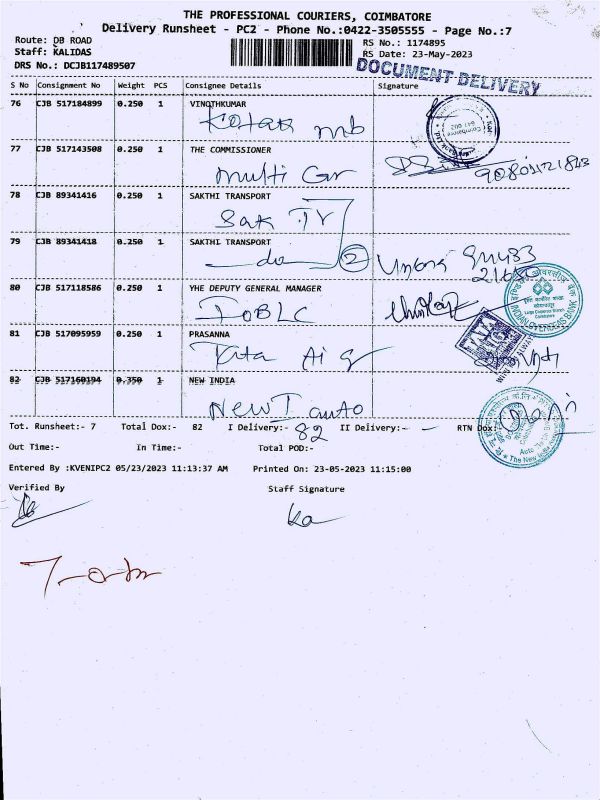 THE PROFESSIONAL COURIERS, COIMBATORE
Delivery Runsheet - PC2 - Phone No.:0422-3505555 - Page No.:7
Route: DB ROAD
RS No.: 1174895
Staff: KALIDAS
RS Date: 23-May-2023
DRS No.: DCJB117489507
DOCUMENT DELIVERY
S No Consignment No Weight PCS Consignee Details Signature
76 CJB 517184899 0.250 1 VINOTHKUMAR
Kotak mb
77 CJB 517143508 0.250 1 THE COMMISSIONER
multi Gr
78 CJB 89341416 0.250 1 SAKTHI TRANSPORT
Sak Tr
79 CJB 89341418 0.250 1 SAKTHI TRANSPORT
do 2
80 CJB 517118586 0.250 1 YHE DEPUTY GENERAL MANAGER
IOBLC
INDIAN OVERSEAS BANK
81 CJB 517095959 0.250 1 PRASANNA
Tata Ai g
82 CJB 517160194 0.350 1 NEW INDIA
New I auto
Tot. Runsheet:- 7 Total Dox:- 82 I Delivery:- 82 II Delivery:- RTN Dox:-
Out Time:- In Time:- Total POD:-
Entered By :KVENIPC2 05/23/2023 11:13:37 AM Printed On: 23-05-2023 11:15:00
Verified By Staff Signature
Ka